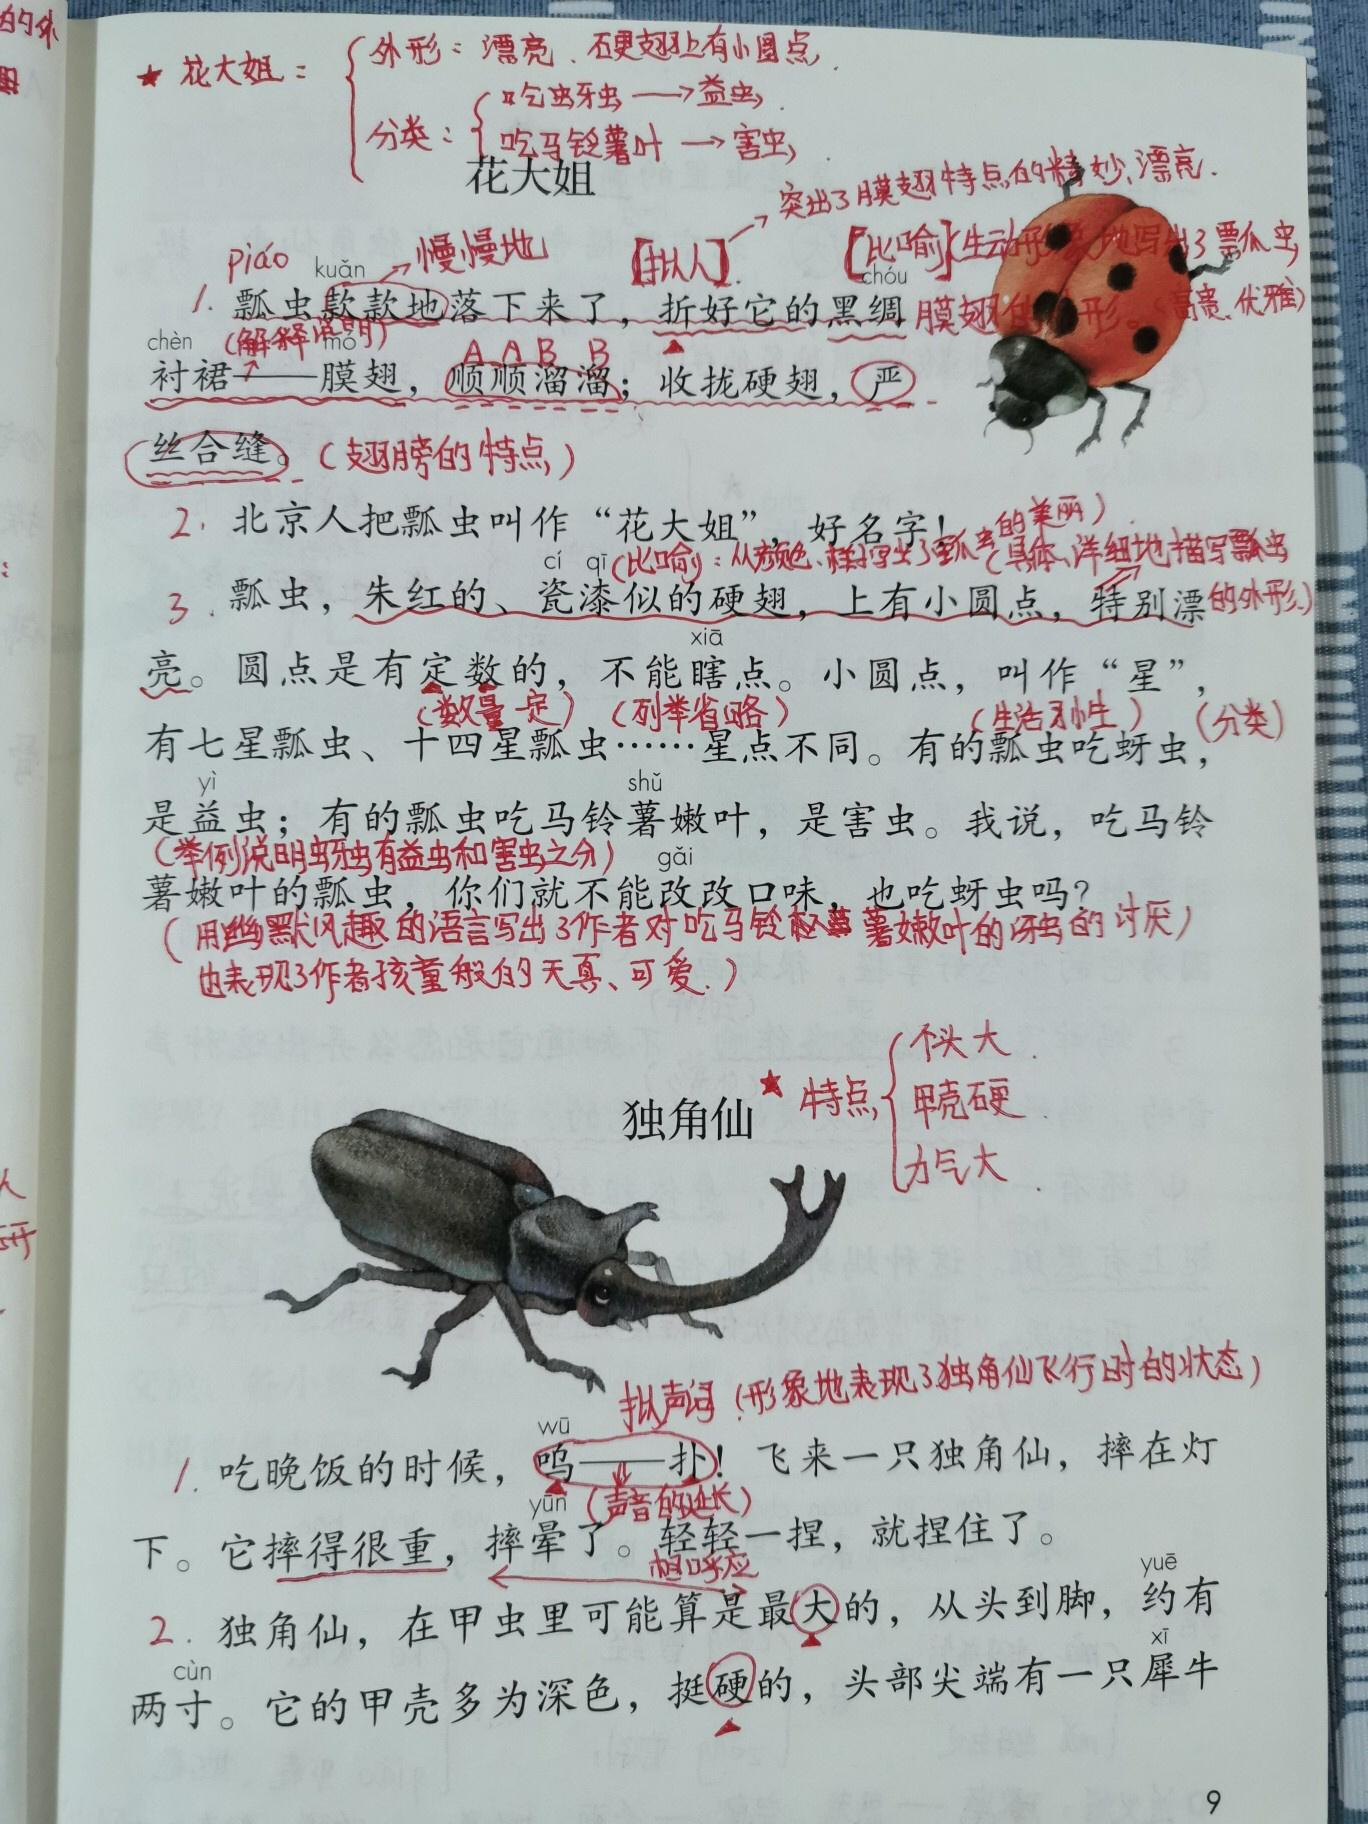 ★ 花大姐：
外形：漂亮、硬翅上有小圆点
分类：
吃蚜虫→益虫
吃马铃薯叶→害虫
花大姐
突出了膜翅特点的精妙、漂亮.
piáo
慢慢地
[拟人]
[比喻]（生动形象地写出了瓢虫
膜翅的外形。高贵、优雅）
kuǎn chóu
1. 瓢虫款款地落下来了，折好它的黑绸
（解释说明）
AABB
chèn mó
衬裙——膜翅，顺顺溜溜；收拢硬翅，严
丝合缝。（翅膀的特点）
2. 北京人把瓢虫叫作“花大姐”，好名字！
（比喻）：从颜色、样子写出了瓢虫的美丽）
（具体、详细地描写瓢虫
的外形.）
cí qī
3. 瓢虫，朱红的、瓷漆似的硬翅，上有小圆点，特别漂
xiā
亮。圆点是有定数的，不能瞎点。小圆点，叫作“星”，
（数量一定）（列举省略）（生活习性）（分类）
有七星瓢虫、十四星瓢虫……星点不同。有的瓢虫吃蚜虫，
yì shǔ
是益虫；有的瓢虫吃马铃薯嫩叶，是害虫。我说，吃马铃
（举例说明蚜虫有益虫和害虫之分）
gǎi
薯嫩叶的瓢虫，你们就不能改改口味，也吃蚜虫吗？
（用幽默风趣的语言写出了作者对吃马铃薯嫩叶的蚜虫的讨厌）
也表现了作者孩童般的天真、可爱.）
独角仙
★ 特点
个头大
甲壳硬
力气大
拟声词（形象地表现了独角仙飞行时的状态）
wū
1. 吃晚饭的时候，呜——扑！飞来一只独角仙，摔在灯
（声音的延长）
yūn
下。它摔得很重，摔晕了。轻轻一捏，就捏住了。
相呼应
yuē
2. 独角仙，在甲虫里可能算是最大的，从头到脚，约有
cùn xī
两寸。它的甲壳多为深色，挺硬的，头部尖端有一只犀牛
9